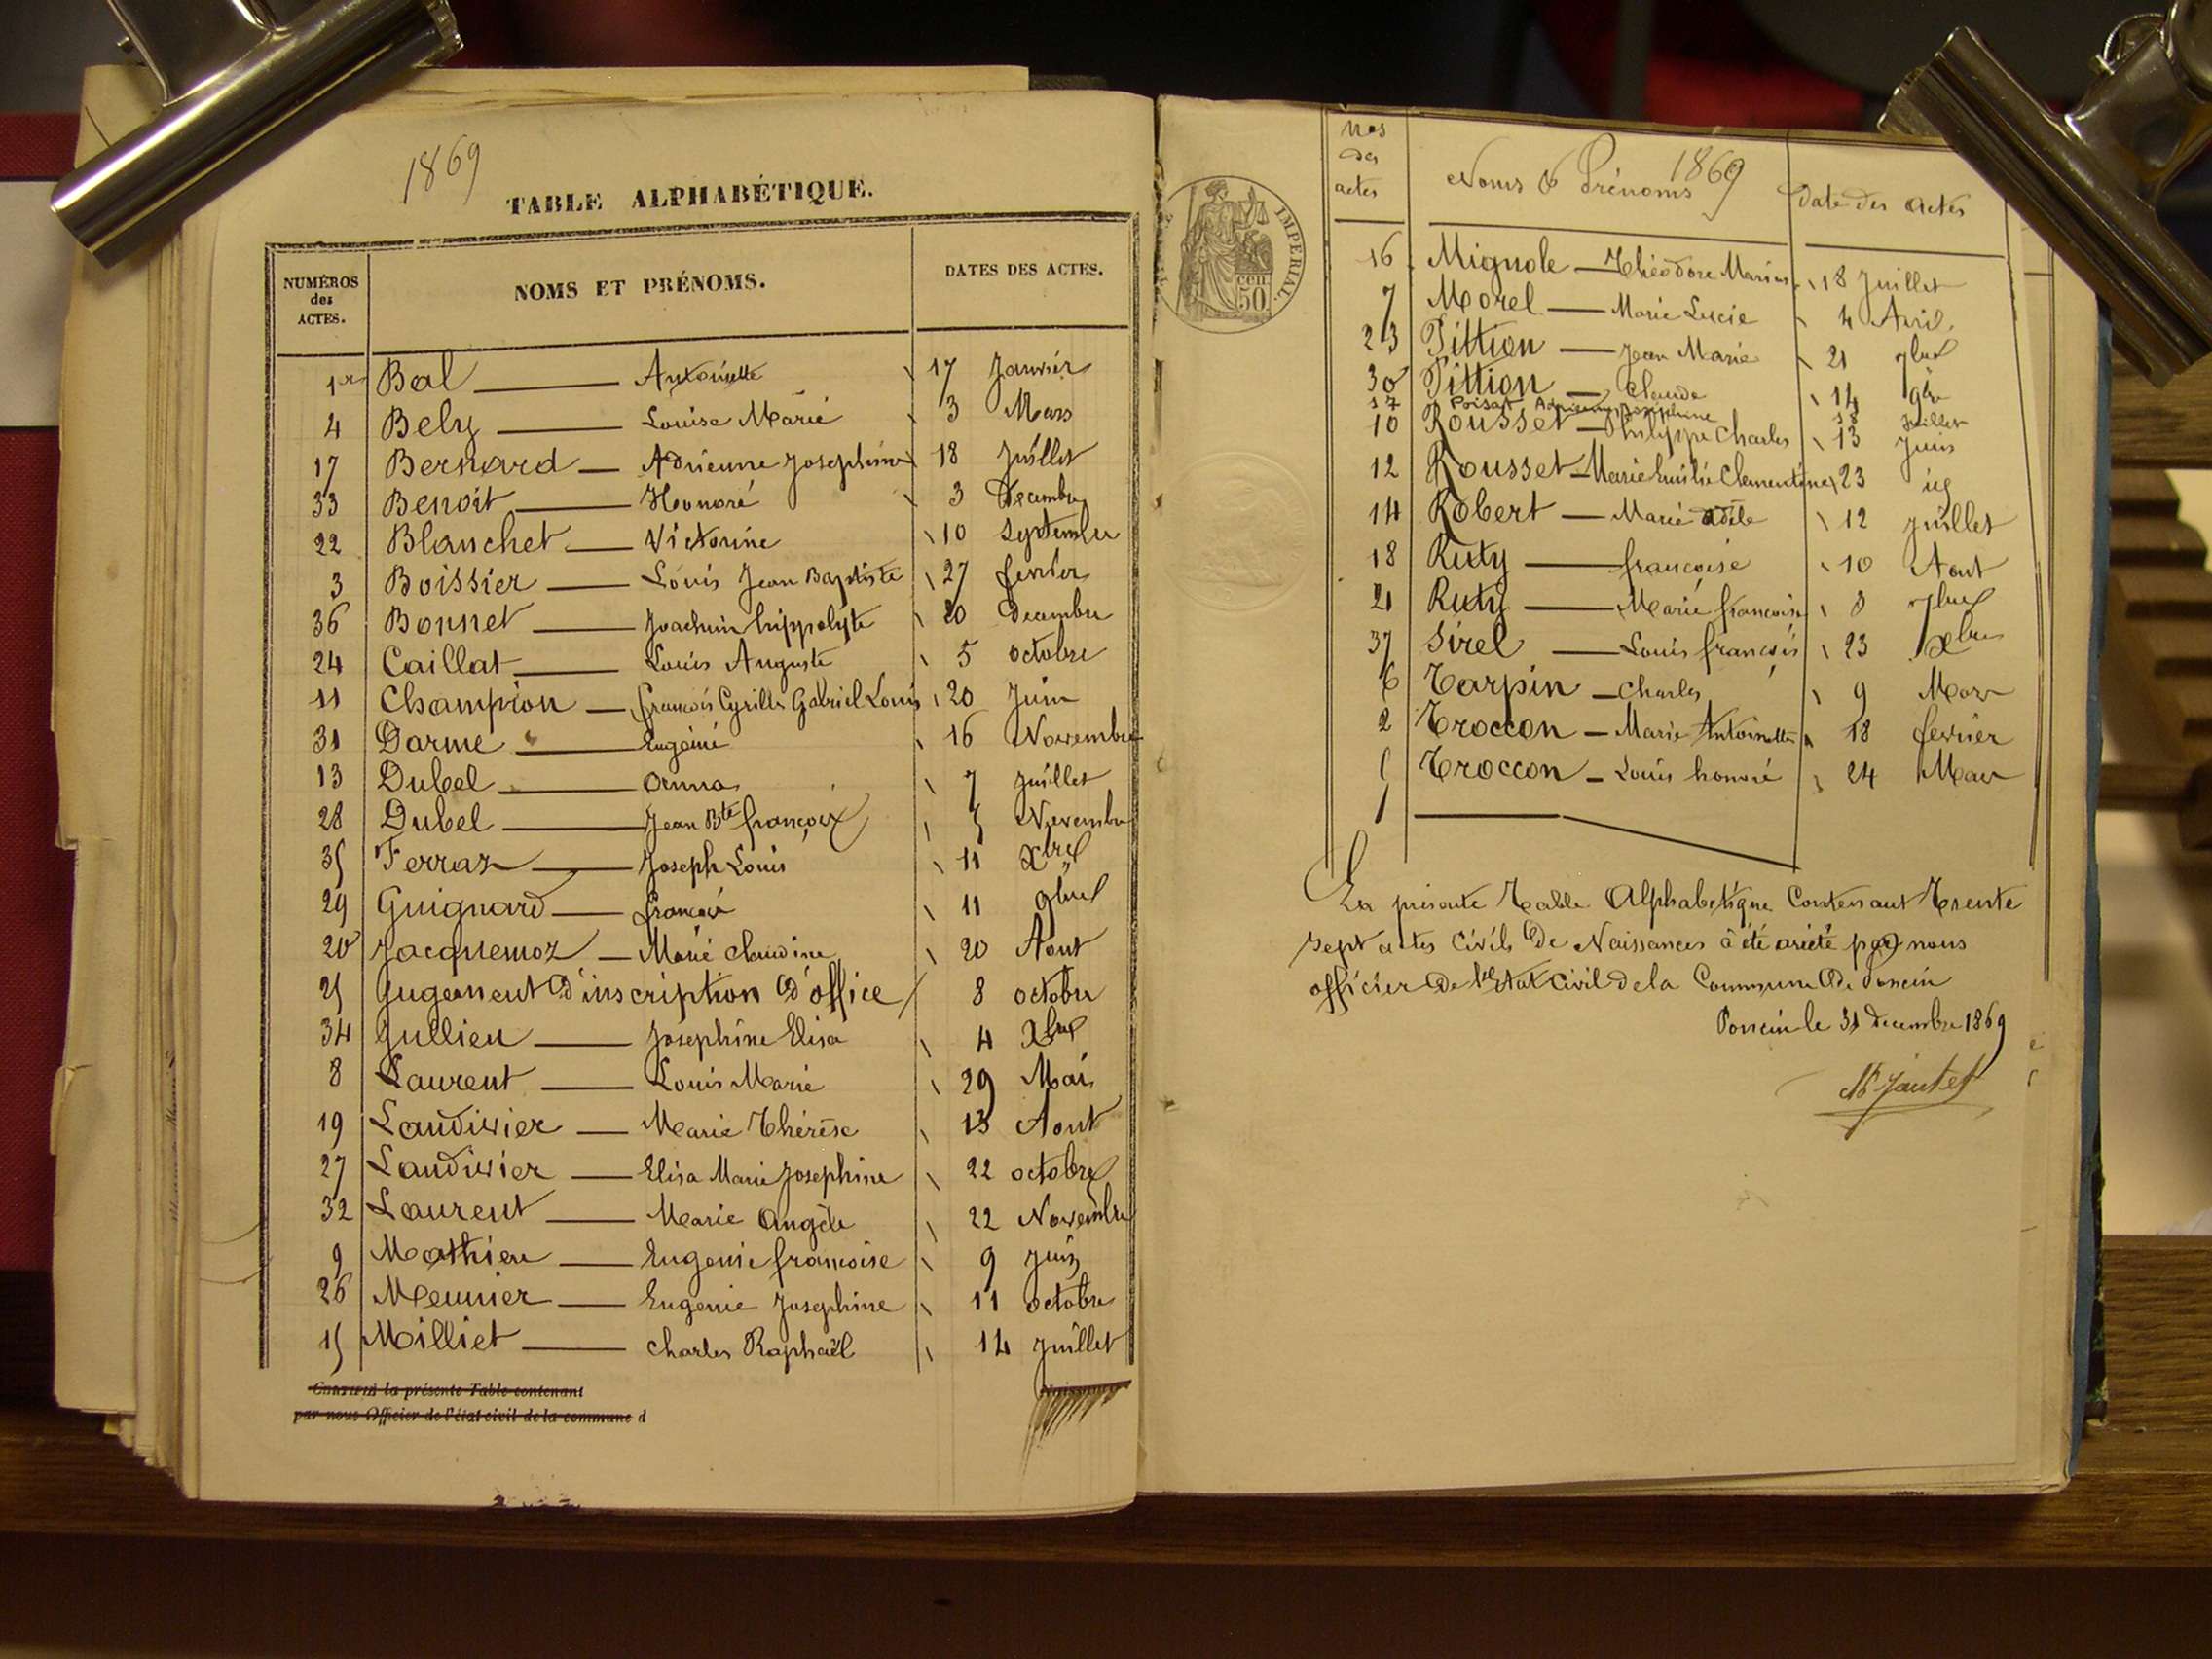 1869
TABLE ALPHABÉTIQUE.
NUMÉROS des ACTES. NOMS ET PRÉNOMS. DATES DES ACTES.
1er Bal Antoinette 17 Janvier
4 Bely Louise Marie 3 Mars
17 Bernard Adrienne Josephine 18 Juillet
33 Benoit Honoré 3 Decembre
22 Blanchet Victorine 10 Septembre
3 Boissier Louis Jean Baptiste 27 fevrier
36 Bonnet Joachim hippolyte 20 Decembre
24 Caillat Louis Auguste 5 octobre
11 Champion francois Cyrille Gabriel Louis 20 Juin
31 Darme Eugénie 16 Novembre
13 Dubel Anna 7 Juillet
28 Dubel Jean Bte françois 5 Novembre
35 Ferraz Joseph Louis 11 Xbre
29 Guignard francois 11 9bre
20 Jacquemoz Marie claudine 20 Aout
25 Jugement D'inscription D'office 8 octobre
34 Jullien Josephine Elisa 4 Xbre
8 Laurent Louis Marie 29 Mai
19 Laudivier Marie Thérèse 13 Aout
27 Laudivier Elisa Marie Josephine 22 octobre
32 Laurent Marie Angèle 22 Novembre
9 Mathieu Eugenie francoise 9 Juin
26 Meunier Eugenie Josephine 11 octobre
15 Milliet Charles Raphaël 14 Juillet
Certifié la présente Table contenant Naissances
par nous Officier de l'état civil de la commune d
IMPERIAL.
cen. 50
1869
nos des actes Noms & Prénoms Date des Actes
16 Mignole Théodore Marius 18 Juillet
7 Morel Marie Lucie 4 Avril
23 Pittion Jean Marie 21 7bre
30 Pittion Claude 14 9bre
17 Poisat Adrienne Josephine 18 Juillet
10 Rousset Philippe Charles 13 Juin
12 Rousset Marie Emilie Clementine 23 id
14 Robert Marie adèle 12 Juillet
18 Ruty francoise 10 Aout
21 Ruty Marie francoise 8 7bre
37 Sirel Louis francois 23 Xbre
6 Tarpin Charles 9 Mars
2 Troccon Marie Antoinette 18 fevrier
5 Troccon Louis honoré 24 Mars
La présente Table Alphabétique Contenant Trente
sept actes Civils De Naissances à été arièté par nous
officier De l'Etat Civil de la Commune De Poncin
Poncin le 31 decembre 1869